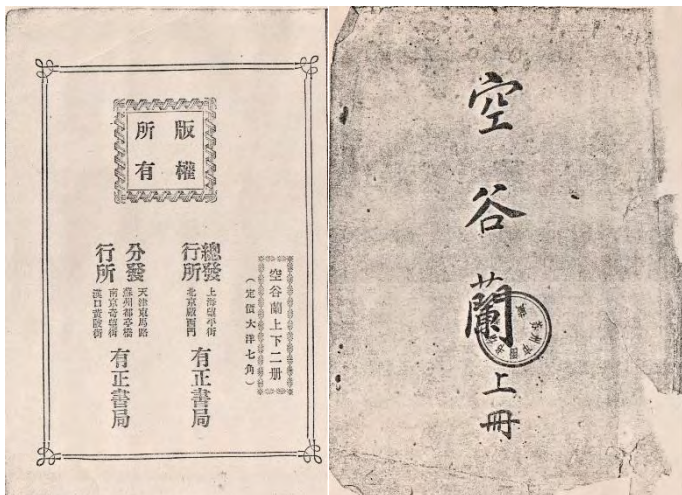 空谷蘭
上冊
版權
所有
空谷蘭上下二册
(定價大洋七角)
總發行所
上海望平街
北京廠西門
有正書局
分發行所
天津東馬路
蘇州都亭橋
南京奇望街
漢口黃陂街
有正書局